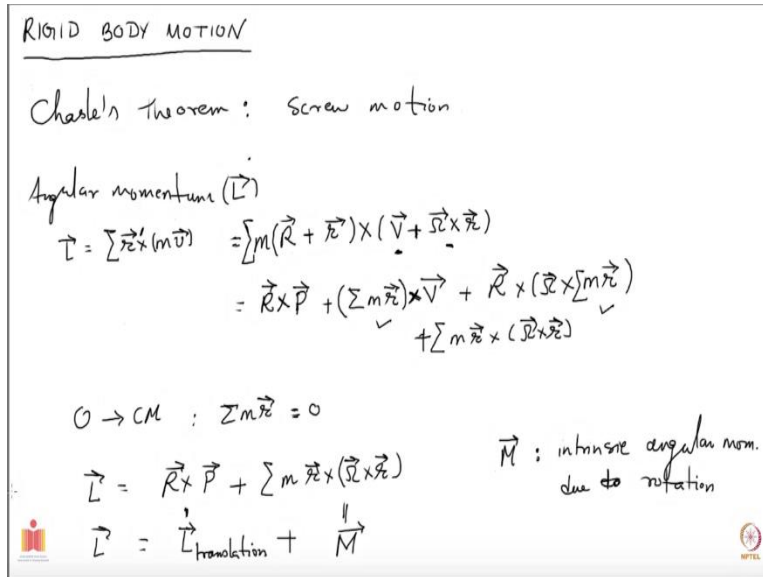 RIGID BODY MOTION
Chasle's Theorem : Screw motion
Angular momentum (L⃗)
L⃗ = ∑ r⃗' × (m v⃗) = ∑ m (R⃗ + r⃗) × (V⃗ + Ω⃗ × r⃗)
= R⃗ × P⃗ + (∑ m r⃗) × V⃗ + R⃗ × (Ω⃗ × ∑ m r⃗)
+ ∑ m r⃗ × (Ω⃗ × r⃗)
O → CM : ∑ m r⃗ = 0
L⃗ = R⃗ × P⃗ + ∑ m r⃗ × (Ω⃗ × r⃗)
L⃗ = L⃗translation + M⃗
M⃗ : intrinsic angular mom.
due to rotation
NPTEL